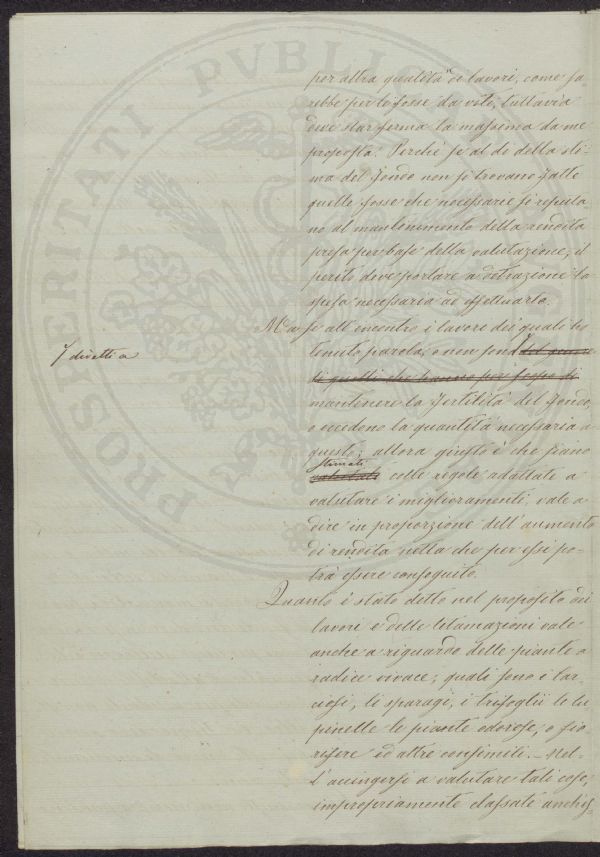 per altra qualità de lavori, come sa
rebbe per le fosse da vite, tuttavia
deve star ferma la massima da me
proposta. Perchè se al dì della sti
ma del fondo non si trovano fatte
quelle fosse che necessarie si reputa
no al mantenimento della rendita
presa per base della valutazione, il
perito deve portare a detrazione la
spesa necessaria ad effettuarle.
Ma se all'incontro i lavori dei quali ho
tenuto parola, o non sono ſ del genere
di quelli che hanno per scopo di
ſ diretti a
mantenere la fertilità del fondo,
o eccedono la quantità necessaria a
questo; allora giusto è che siano
stimati
valutati colle regole adattate a
valutare i miglioramenti vale a
dire in proporzione dell'aumento
di rendita netta che per essi po-
trà essere conseguito.
Quanto è stato detto nel proposito dei
lavori e delle letamazioni vale
anche a riguardo delle piante a
radice vivace, quali sono i car
ciofi, li sparagi, i trifoglii le lu
pinelle le piante odorose, o fio
rifere ed altre consimili. — Nel-
l'accingersi a valutare tali cose,
impropriamente classate anch'es